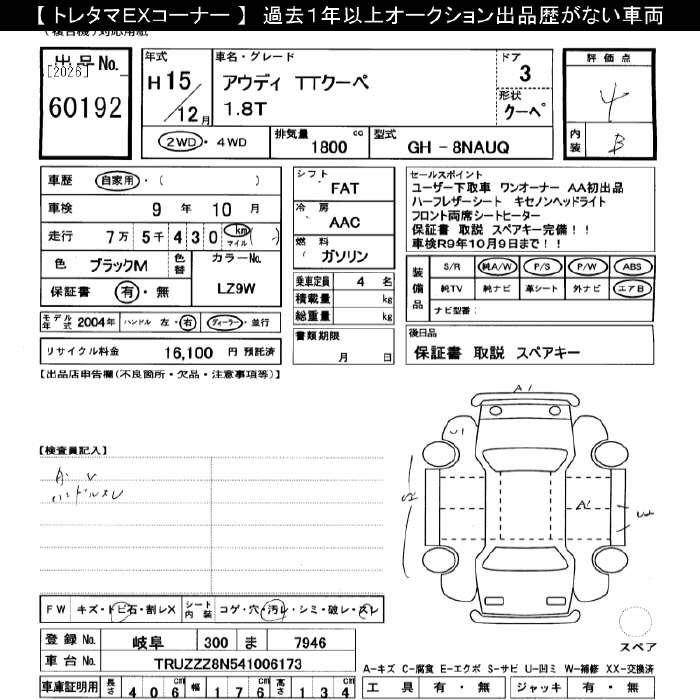 【 トレタマEXコーナー 】 過去1年以上オークション出品歴がない車両
(複合機)対応用紙
出品No.
[2026]
60192
年式
H 15
12月
車名・グレード
アウディ TTクーペ
1.8T
ドア
3
形状
クーペ
2WD・4WD
排気量
1800 cc
型式
GH - 8NAUQ
評価点
4
内装
B
車歴 自家用・( )
車検 9 年 10 月
走行 7万 5千 4 3 0 km マイル ( )
色 ブラックM
色替
カラーNo.
LZ9W
保証書 有・無
モデル年式 2004年 ハンドル 左・右 ディーラー・並行
リサイクル料金 16,100 円 預託済
シフト
FAT
冷房
AAC
燃料
ガソリン
乗車定員 4 名
積載量 kg
総重量 kg
書類期限
月 日
セールスポイント
ユーザー下取車 ワンオーナー AA初出品
ハーフレザーシート キセノンヘッドライト
フロント両席シートヒーター
保証書 取説 スペアキー完備！！
車検R9年10月9日まで！！
装備品
S/R 純A/W P/S P/W ABS
純TV 純ナビ 革シート 外ナビ エアB
ナビ型番：
後日品
保証書 取説 スペアキー
【出品店申告欄(不良箇所・欠品・注意事項等)】
【検査員記入】
ハンドルスレ
A1
U1
A2
FW キズ・トビ石・割レX
シート内装 コゲ・穴・汚レ・シミ・破レ・スレ
登録No. 岐阜 300 ま 7946
車台No. TRUZZZ8N541006173
車庫証明用 長さ 406 cm 幅 176 cm 高さ 134 cm
スペア
A-キズ C-腐食 E-エクボ S-サビ U-凹ミ W-補修 XX-交換済
工具 有・無 ジャッキ 有・無